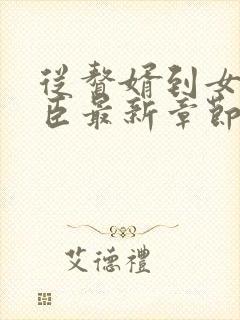 從贅婿到女
臣最新章節
艾德禮